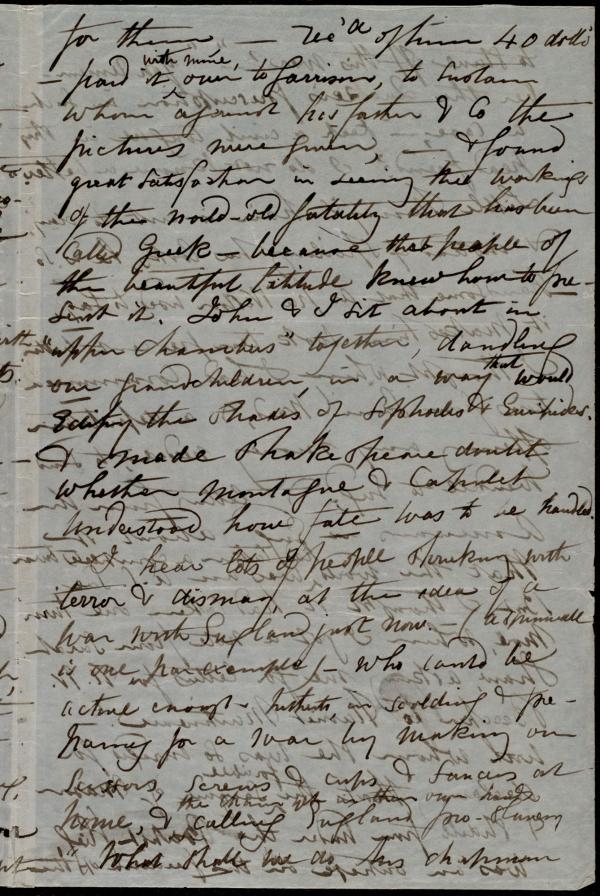 for them — rec'd of him 40 dolls
— paid it, with mine, over to Garrison, to sustain
whom against his father & Co the
pictures were given, — & found
great satisfaction in seeing the workings
of the world-old fatality that has been
called Greek — because that people of
the beautiful latitude knew how to pre-
sent it. John & I sit about in
"upper chambers" together, dandling
our grandchildren, in a way that would
edify the shades of Sophocles & Euripides.
& made Shakespeare doubt
whether Montague & Capulet
understood how fate was to be handled.
I hear lots of people shrieking with
terror & dismay, at the idea of a
war with England just now. — (
is one par exemple) — who could be
active enough in scolding & pre-
paring for a war by making our
scissors, screws & cups & saucers at
home, & calling England pro-slavery
What shall we do Mrs Chapman